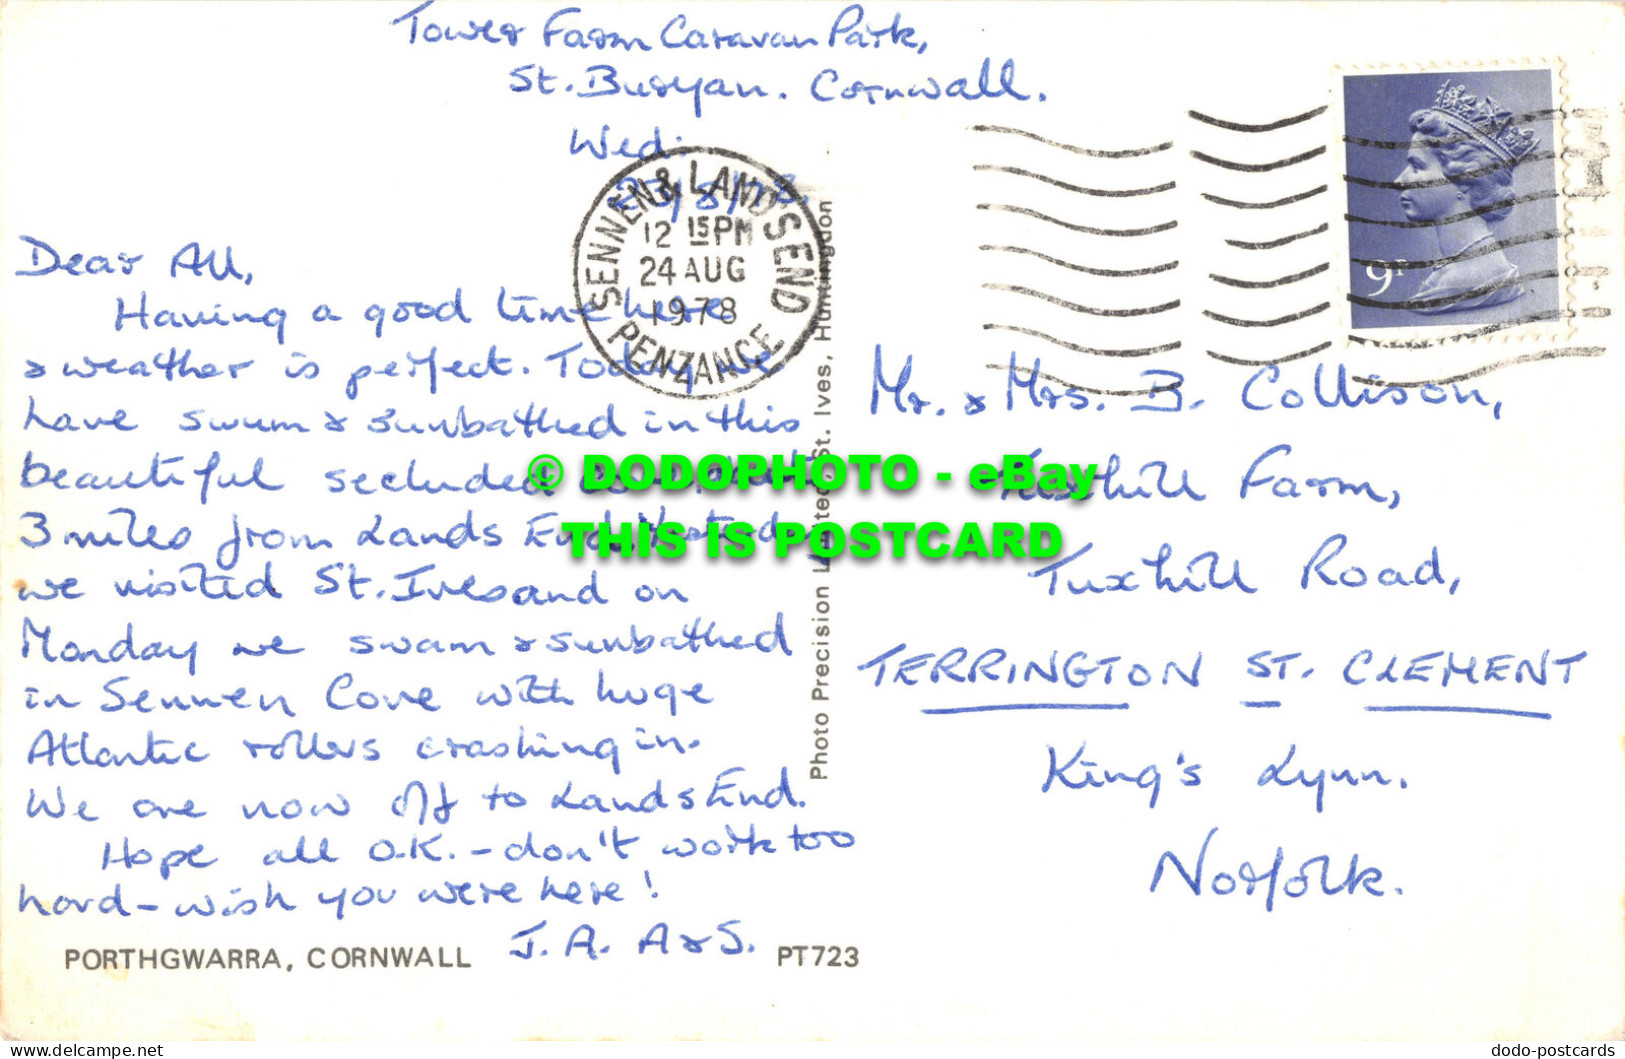 Tower Farm Caravan Park,
St. Buryan. Cornwall.
Wed:
23/8/78.
SENNEN & LAND'S END
12 15 PM
24 AUG
1978
PENZANCE
9P
Dear All,
Having a good time here
& weather is perfect. Today we
have swum & sunbathed in this
beautiful secluded
3 miles from Lands End. Yesterday
we visited St. Ives and on
Monday we swam & sunbathed
in Sennen Cove with huge
Atlantic rollers crashing in.
We are now off to Lands End.
Hope all O.K. - don't work too
hard - wish you were here!
J. A. A & S.
PORTHGWARRA, CORNWALL
PT723
Photo Precision Limited, St. Ives, Huntingdon
Mr. & Mrs. B. Collison,
Tuxhill Farm,
Tuxhill Road,
TERRINGTON ST. CLEMENT
King's Lynn.
Norfolk.
© DODOPHOTO - eBay
THIS IS POSTCARD
delcampe.net
dodo-postcards